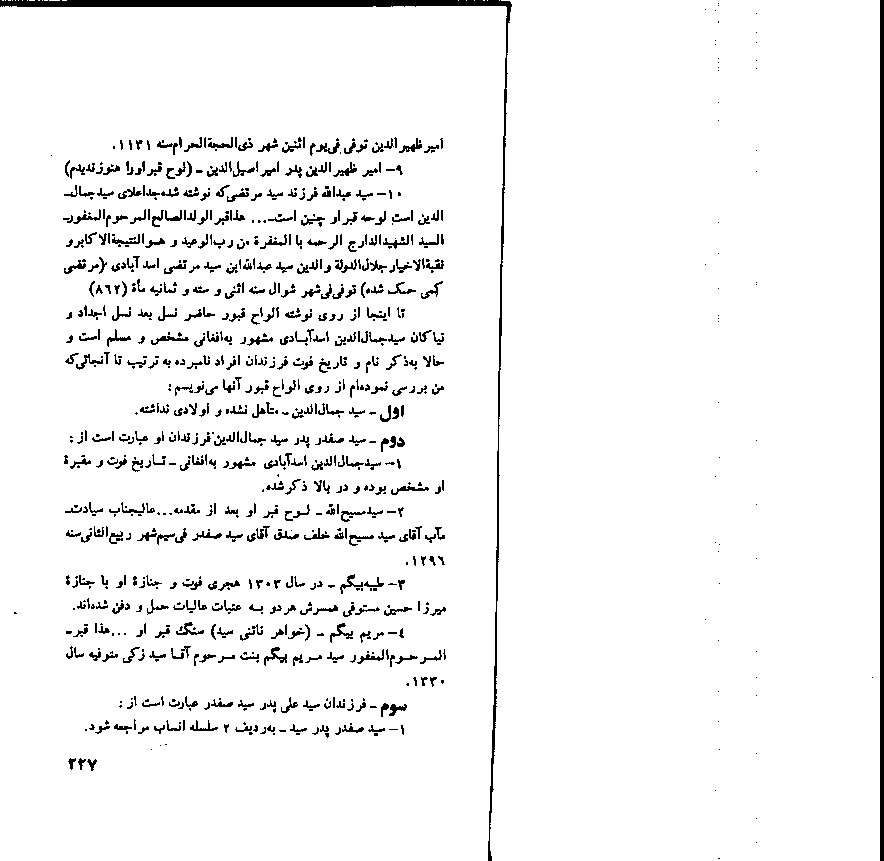 امیر ظهیرالدین توفی فی‌یوم اثنین شهر ذی‌الحجة‌الحرام‌سنه ۱۱۳۱.
۹– امیر ظهیرالدین پدر امیر اصیل‌الدین ـ (لوح قبر اورا هنوز ندیدم)
۱۰– سید عبدالله فرزند سید مرتضی‌که نوشته شده‌جداعلای سیدجمال‌ـ
الدین است لوحه قبر او چنین است‌ـ... هذاقبرالولدالصالح‌المرحوم‌المغفورـ
السید الشهیدالدارج الرحمه با المغفرة من رب‌الوعید و هـوالنتیجة‌الاکابر و
نقبة‌الاخیار جلال‌الدولة والدین سید عبدالله‌ابن سید مرتضی اسد آبادی (مرتضی
کمی حـک شده) توفی‌فی‌شهر شوال سنه اثنی و سته و ثمانیه مأة (۸۶۲)
تا اینجا از روی نوشته الواح قبور حاضر نسل بعد نسل اجداد و
نیاکان سیدجمال‌الدین اسدآبـادی مشهور به‌افغانی مشخص و مسلم است و
حالا به‌ذکر نام و تاریخ فوت فرزندان افراد نامبرده به ترتیب تا آنجائی‌که
من بررسی نموده‌ام از روی الواح قبور آنها می‌نویسم :
اول ـ سید جمال‌الدین ـ متأهل نشده و اولادی نداشته.
دوم ـ سید صفدر پدر سید جمال‌الدین فرزندان او عبارت است از :
۱– سیدجمال‌الدین اسدآبادی مشهور به‌افغانی ـ تـاریخ فوت و مقبرۀ
او مشخص بوده و در بالا ذکرشده.
۲– سیدمسیح‌الله ـ لـوح قبر او بعد از مقدمه...عالیجناب سیادت‌ـ
مآب آقای سید مسیح‌الله خلف صدق آقای سید صفدر فی‌سیم‌شهر ربیع‌الثانی‌سنه
۱۲۹۶.
۳– طیبه‌بیگم ـ در سال ۱۳۰۳ هجری فوت و جنازۀ او با جنازۀ
میرزا حسین مستوفی همسرش هردو بـه عتبات عالیات حمل و دفن شده‌اند.
۴– مریم بیگم ـ (خواهر ناتنی سید) سنگ قبر او ...هذا قبرـ
المـرحـوم‌المغفور سید مـریم بیگم بنت مـرحوم آقـا سید زکی متوفیه سال
۱۳۳۰.
سوم ـ فرزندان سید علی پدر سید صفدر عبارت است از :
۱– سید صفدر پدر سید ـ به‌ردیف ۲ سلسله انساب مراجعه شود.
۲۲۷